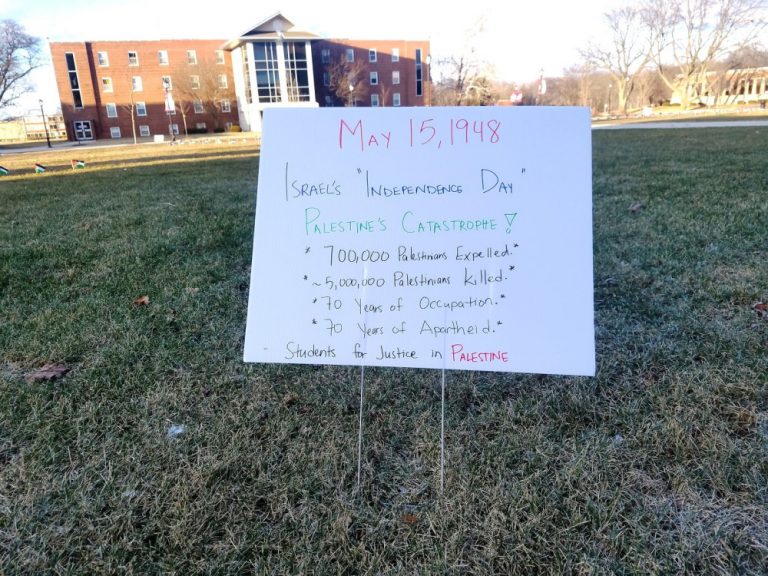 May 15, 1948
Israel's "Independence Day"
Palestine's Catastrophe!
* 700,000 Palestinians Expelled.*
*~5,000,000 Palestinians Killed.*
*70 Years of Occupation.*
*70 Years of Apartheid.*
- Students for Justice in PALESTINE